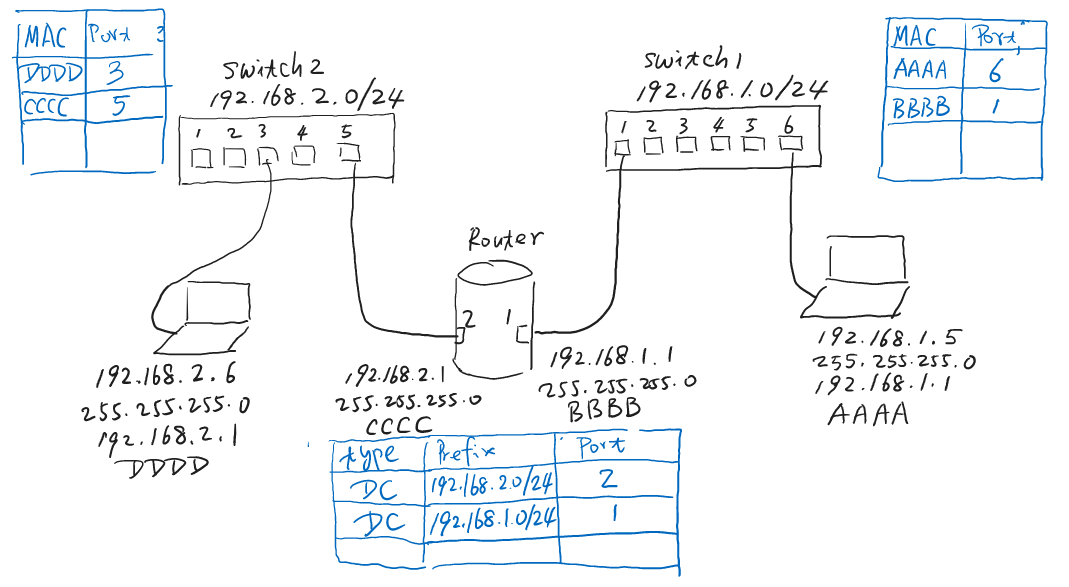 MAC Port
DDDD 3
CCCC 5
switch2
192.168.2.0/24
1 2 3 4 5
switch1
192.168.1.0/24
1 2 3 4 5 6
MAC Port
AAAA 6
BBBB 1
Router
2 1
192.168.2.6
255.255.255.0
192.168.2.1
DDDD
192.168.2.1
255.255.255.0
CCCC
192.168.1.1
255.255.255.0
BBBB
192.168.1.5
255.255.255.0
192.168.1.1
AAAA
type Prefix Port
DC 192.168.2.0/24 2
DC 192.168.1.0/24 1